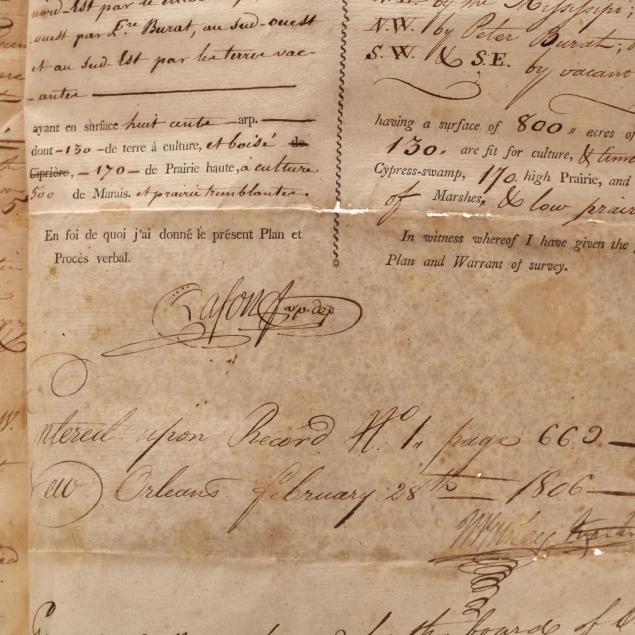 nord Est par le
ouest par Pre Burat, au sud-ouest
et au sud Est par les terres vac-
-antes
ayant en surface huit cents arp.
dont -130- de terre à culture, et boisé de
Ciprière, -170- de Prairie haute, à culture
500 de Marais. et prairie tremblantes.
En foi de quoi j'ai donné le présent Plan et
Procès verbal.
N.E. by the Mississipi;
N.W. by Peter Burat;
S.W. & S.E. by vacant
having a surface of 800 acres of
130. are fit for culture, &
Cypress-swamp, 170 high Prairie, and
of Marshes, & low
In witness whereof I have given the
Plan and Warrant of survey.
Lafon arp. dep
ntered upon Record No. 1, page 662
ew Orleans february 28th 1806
the board of